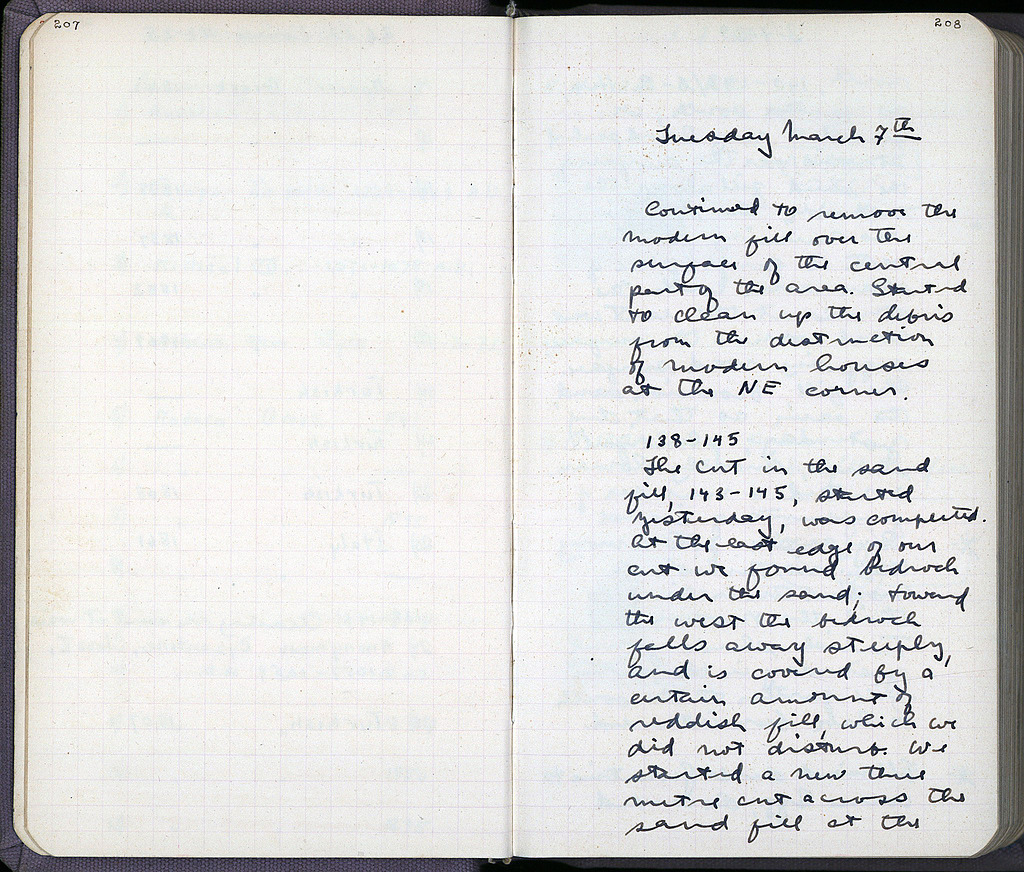 207
208
Tuesday March 7th
Continued to remove the
modern fill over the
surface of the central
part of the area. Started
to clean up the debris
from the destruction
of modern houses
at the NE corner.
138-145
The cut in the sand
fill, 143-145, started
yesterday, was completed.
At the east edge of our
cut we found bedrock
under the sand; toward
the west the bedrock
falls away steeply,
and is covered by a
certain amount of
reddish fill, which we
did not disturb. We
started a new three
metre cut across the
sand fill at the